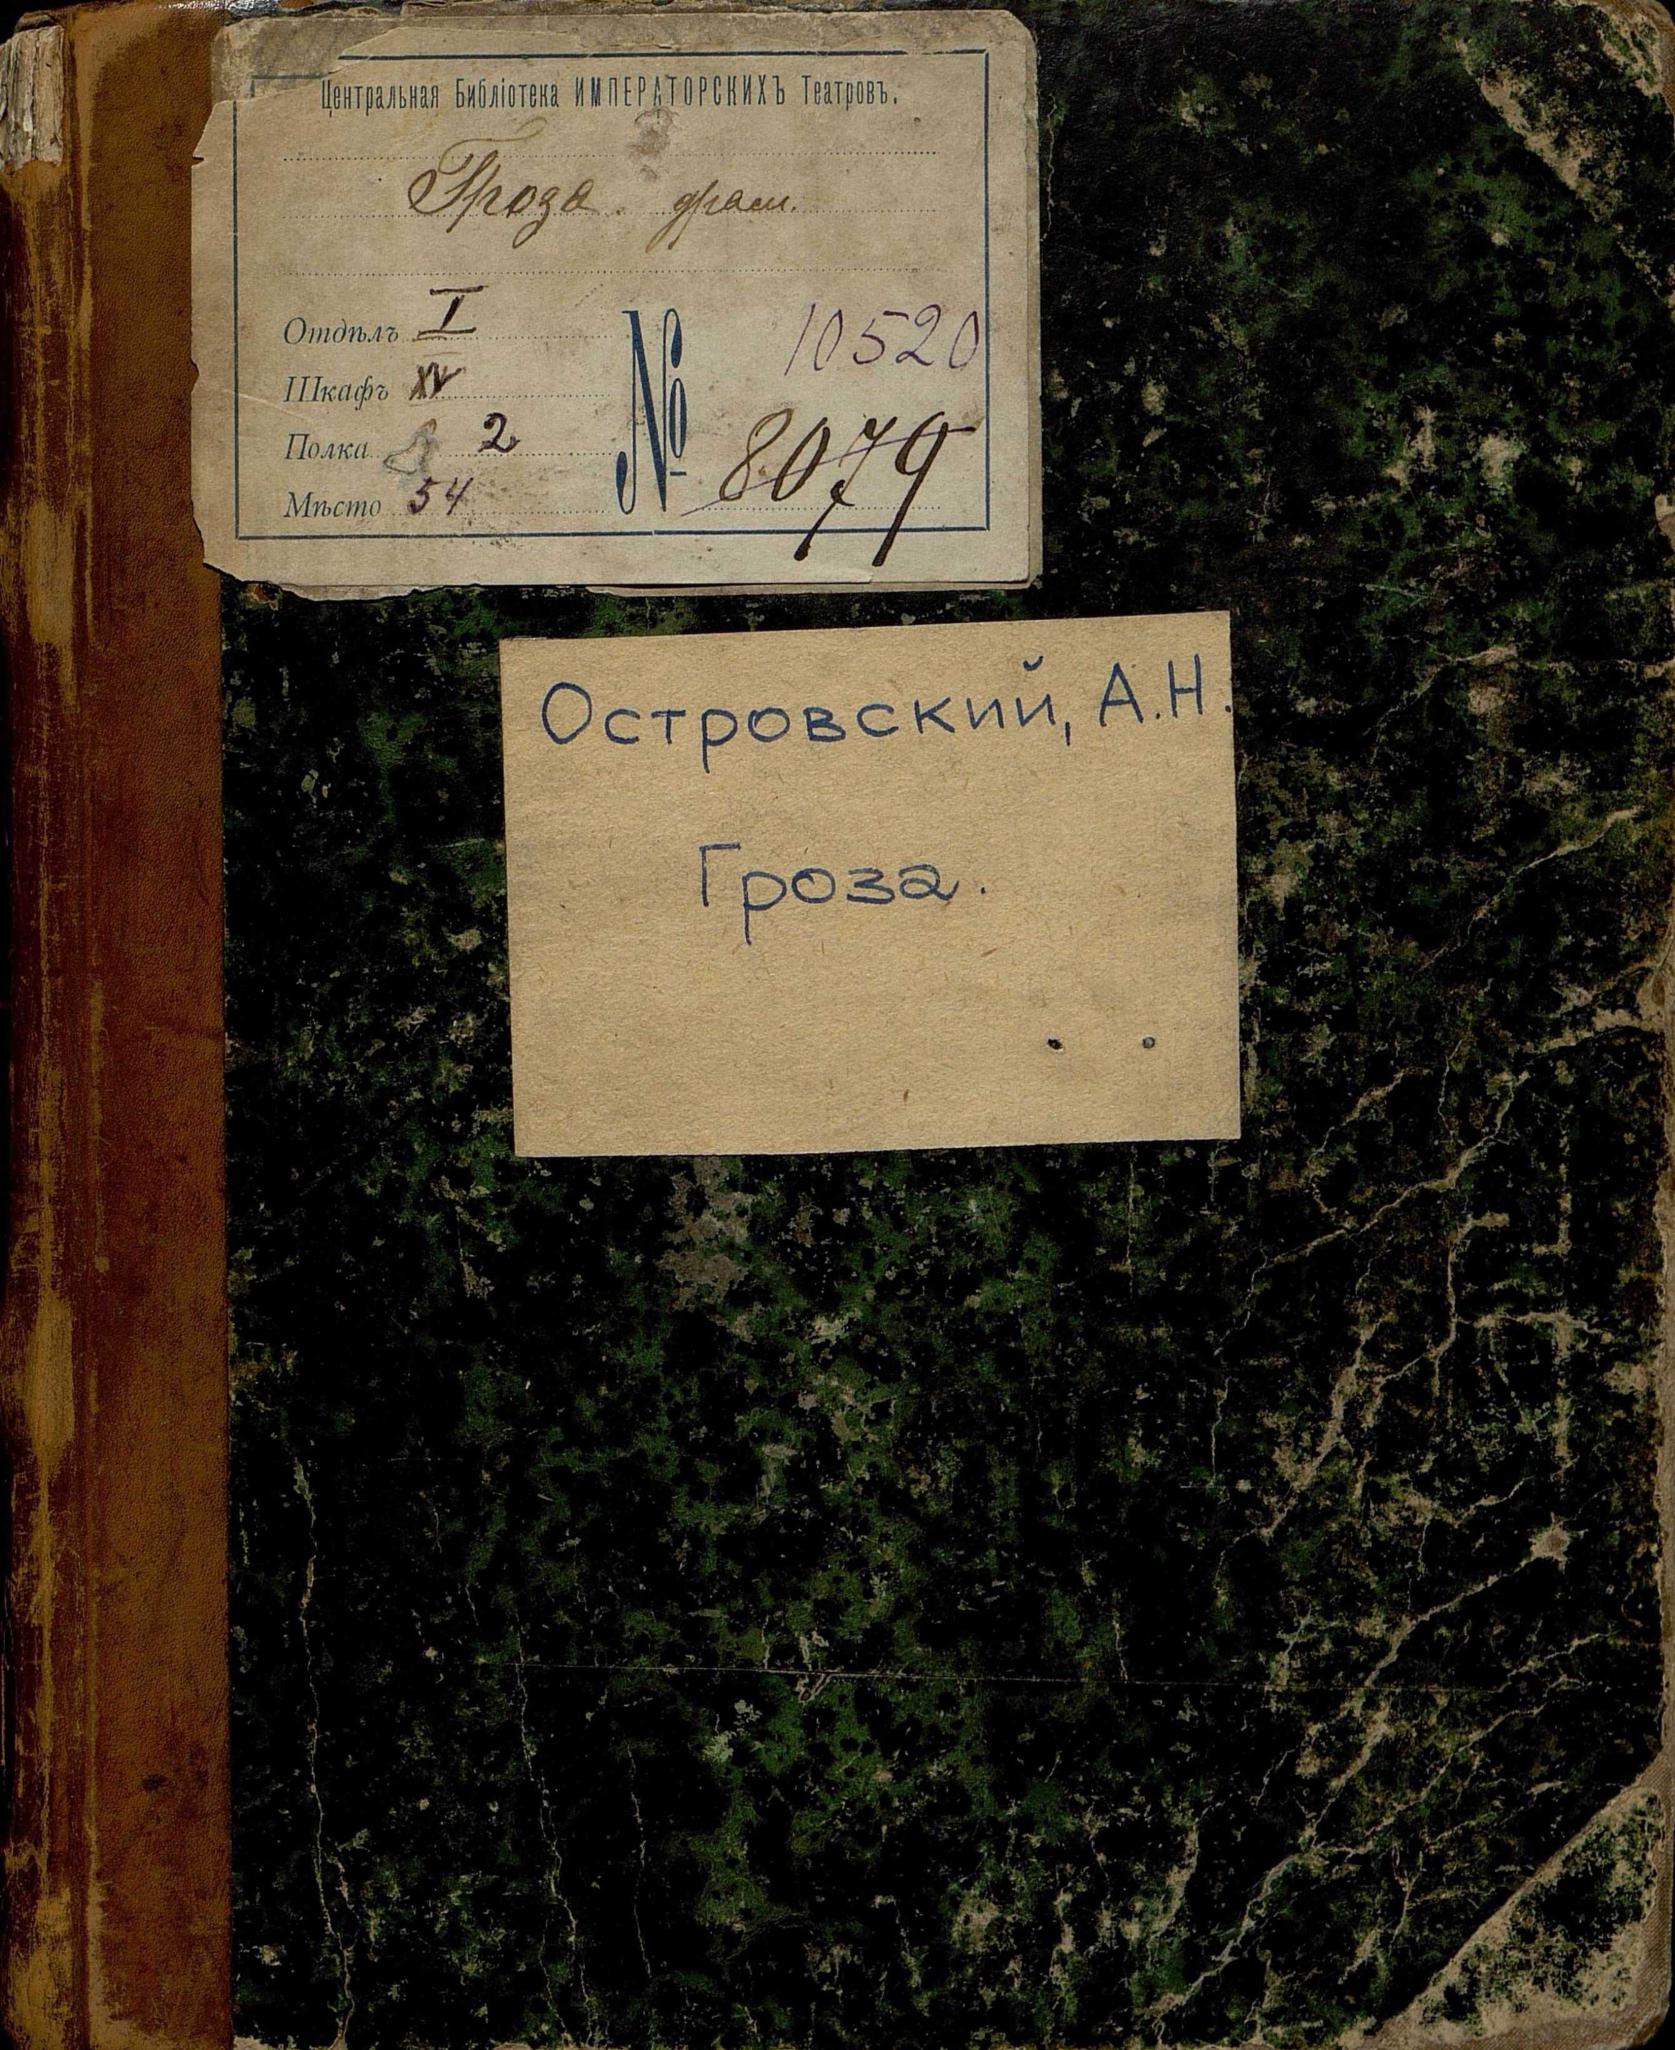 Центральная Библіотека ИМПЕРАТОРСКИХЪ Театровъ.
Гроза. драм.
Отдѣлъ I
Шкафъ XV
Полка 2
Мѣсто 54
№ 10520
8079
Островский, А.Н.
Гроза.